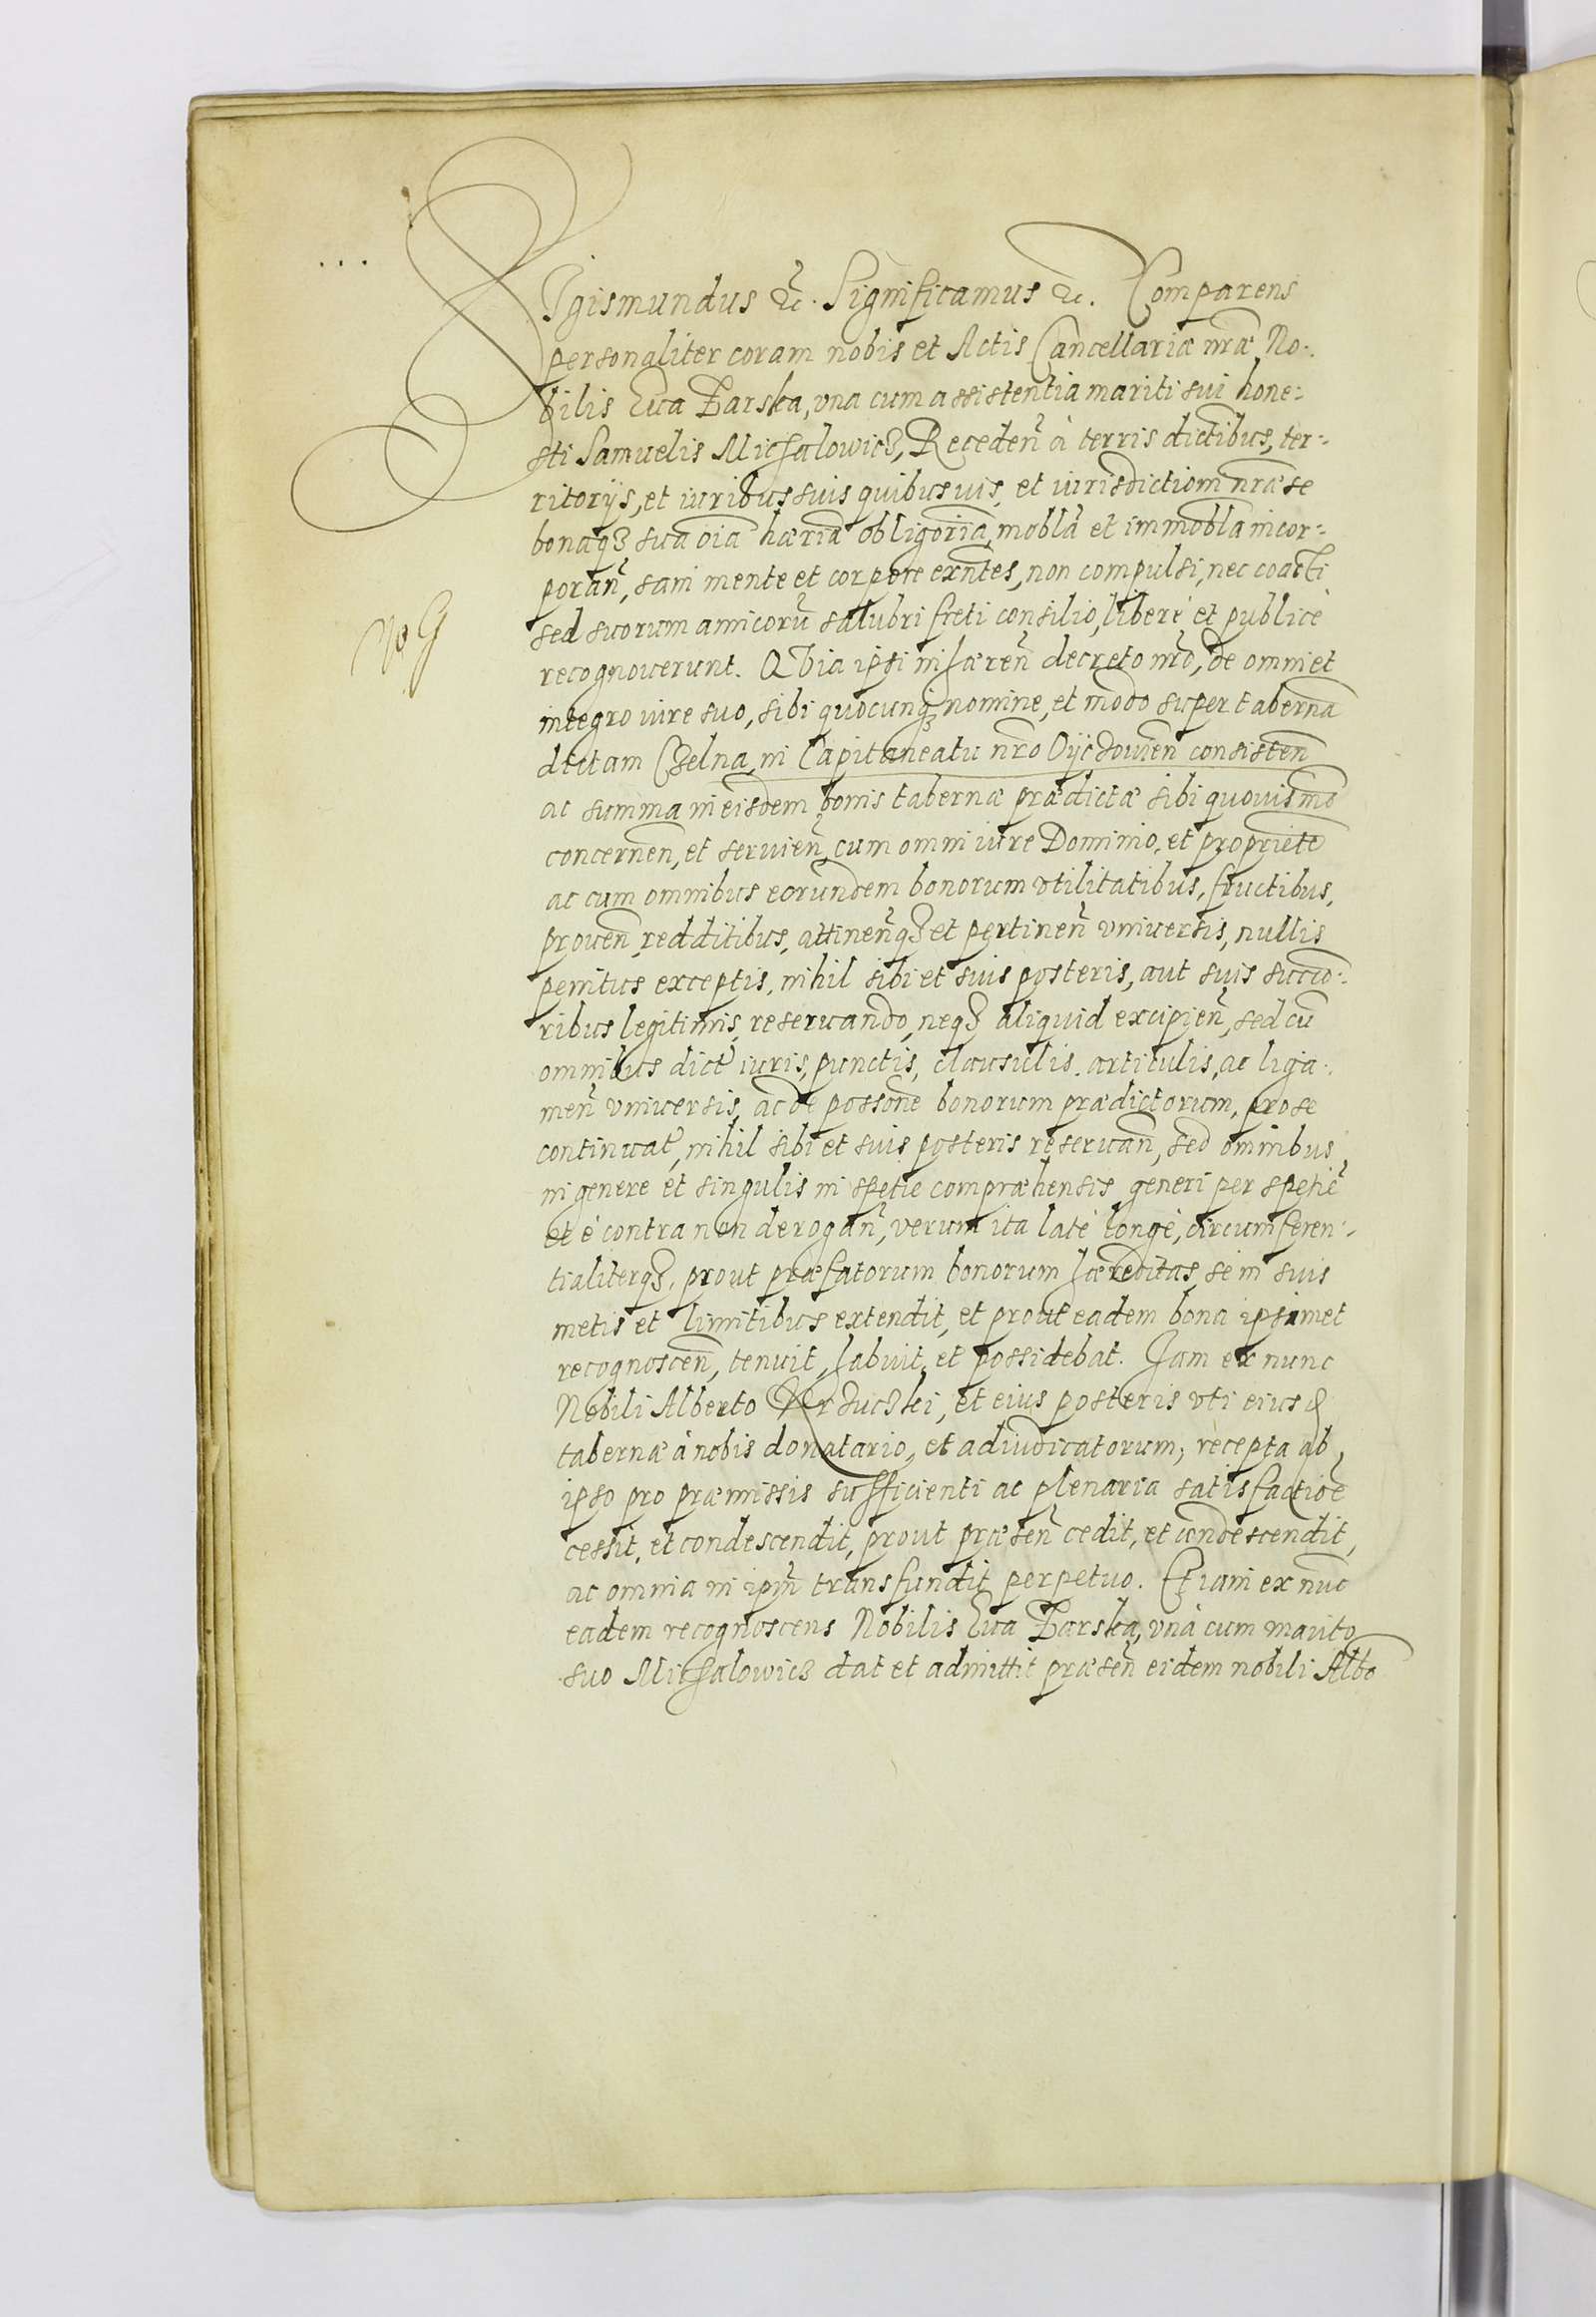 SIgismundus &c̃. Significamus &c. Comparens
personaliter coram nobis et Actis Cancellariæ nr̃æ No:
bilis Eua Zarska, vna cum assistentia mariti sui hone:
sti Samuelis Michalowicz, Receden̄ à terris dictibus, ter:
ritorijs, et iuribus suis quibusuis, et iurisdictiom̃ nr̃æ se
bonaqз sua oı̃a hæriã obligoriã, moblã et immoblã incor:
poran̄, sani mente et corpore exn̄tes, non compulsi, nec coacti
sed suorum amicorũ salubri freti consilio, liberè et publicè
recognouerunt. QVia ipsi inhæren̄ decreto nr̃o, de omni et
integro iure suo, sibi quocunqз nomine, et modo super tabernã
dictam Czelna, in Capitaneatu nr̃o Oÿcouien̄ consisten̄
ac summa in eisdem bonis tabernæ prædictæ sibi quouismõ
concernen̄, et seruien̄, cum omni iure Dominio, et propriẽte
ac cum omnibus eorundem bonorum vtilitatibus, fructibus,
prouen̄, redditibus, attinen̄qз et pertinen̄ vniuersis, nullis
penitus exceptis, nihil sibi et suis posteris, aut suis succõ:
ribus legitimis, reseruando, neqз aliquid excipien̄, sed cũ
omnibus dict̃ iuris, punctis, clausulis, articulis, ac liga:
men̄ vniuersis, ac de possõne bonorum prædictorum, pro se
continuat̃, nihil sibi et suis posteris reseruan̄, sed omnibus
in genere et singulis in spetie compræhensis, generi per spetiẽ
et è contra non derogan̄, verum ita latè longè, circumferen:
tialiterqз, prout præfatorum bonorum hæreditas, se in suis
metis et limitibus extendit, et prout eadem bona ipsimet
recognoscen̄, tenuit, habuit, et possidebat. Iam ex nunc
Nobili Alberto et eius posteris vti eiusd
tabernæ à nobis donatario, et adiudicatorum, recepta ab
ipso pro præmissis sufficienti ac plenaria satisfactiõe
cessit, et condescendit, prout præsen̄ cedit, et condescendit,
ac omnia in ipm̃ transfundit perpetuo. Etiam ex nũc
eadem recognoscens Nobilis Eua Zarska, vnà cum marito
suo Michalowicz dat et admittit præsen̄ eidem nobili Albõ